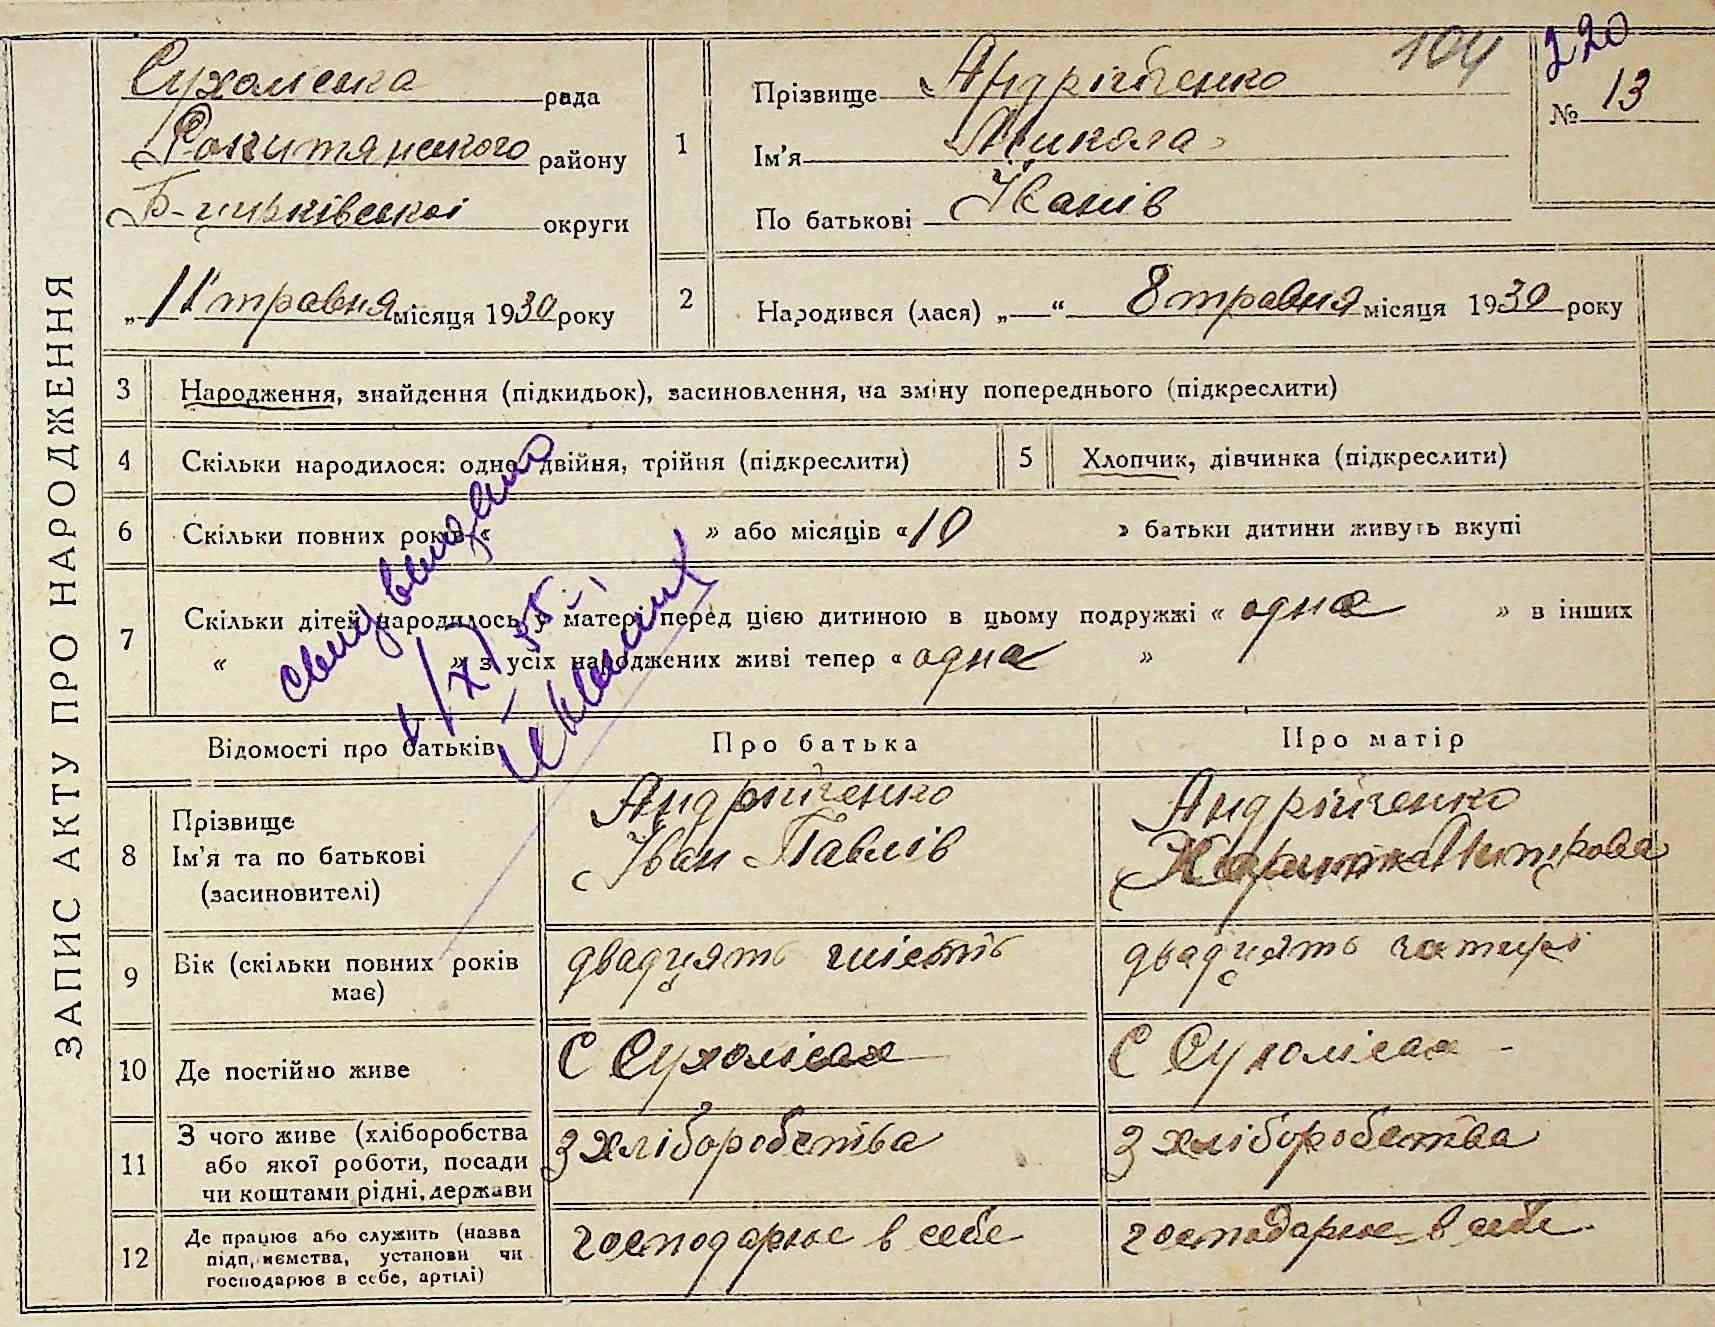 ЗАПИС АКТУ ПРО НАРОДЖЕННЯ
Сухоліська рада
Рокитянського району
Б-церківської округи
„11“ травня місяця 1930 року
104
220
№ 13
1
Прізвище Андрійченко
Ім'я Микола
По батькові Іванів
2
Народився (лася) „ “ 8 травня місяця 1930 року
3 Народження, знайдення (підкидьок), засиновлення, на зміну попереднього (підкреслити)
4 Скільки народилося: одно, двійня, трійня (підкреслити)
5 Хлопчик, дівчинка (підкреслити)
6 Скільки повних років « » або місяців «10 » батьки дитини живуть вкупі
7 Скільки дітей народилось у матері перед цією дитиною в цьому подружжі « одна » в інших
« » з усіх народжених живі тепер « одна »
1/XI 55
Відомості про батьків Про батька Про матір
8 Прізвище Андрійченко Андрійченко
Ім'я та по батькові Іван Павлів
(засиновителі)
9 Вік (скільки повних років має) двадцять шість двадцять чотирі
10 Де постійно живе С Сухолісах С Сухолісах
11 З чого живе (хліборобства або якої роботи, посади чи коштами рідні, держави З хліборобства З хліборобства
12 Де працює або служить (назва підприємства, установи чи господарює в себе, артілі) господарює в себе господарює в себе